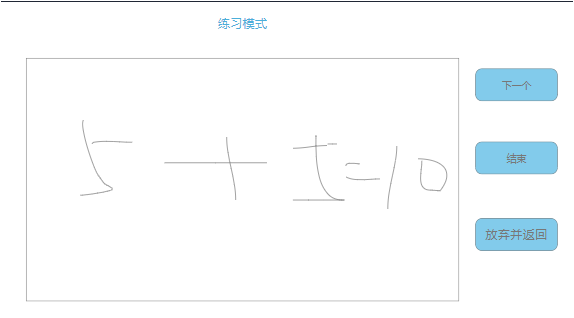 练习模式
5+5=10
下一个
结束
放弃并返回